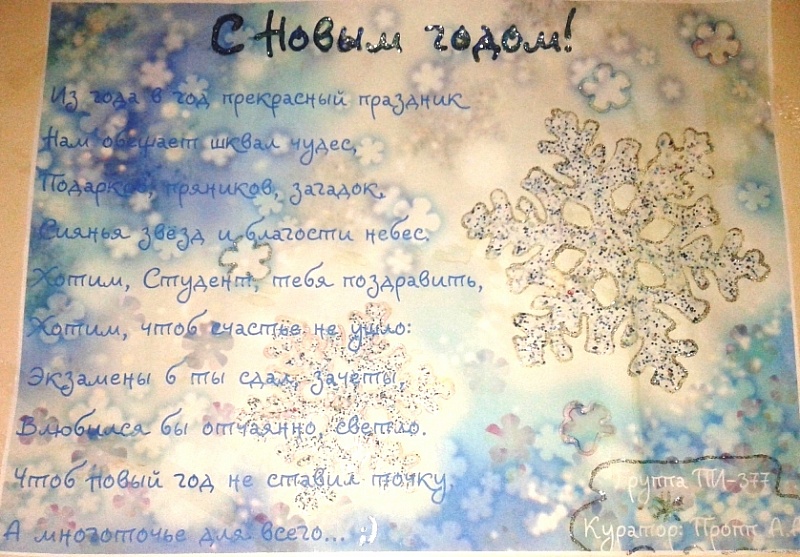 С Новым годом!
Из года в год прекрасный праздник
Нам обещает шквал чудес,
Подарков, пряников, загадок,
Сиянья звёзд и благости небес.
Хотим, Студент, тебя поздравить,
Хотим, чтоб счастье не ушло:
Экзамены б ты сдал, зачёты,
Влюбился бы отчаянно, светло.
Чтоб Новый год не ставил точку,
А многоточье для всего... ;)
Группа ПИ-377
Куратор: Пропп А.А